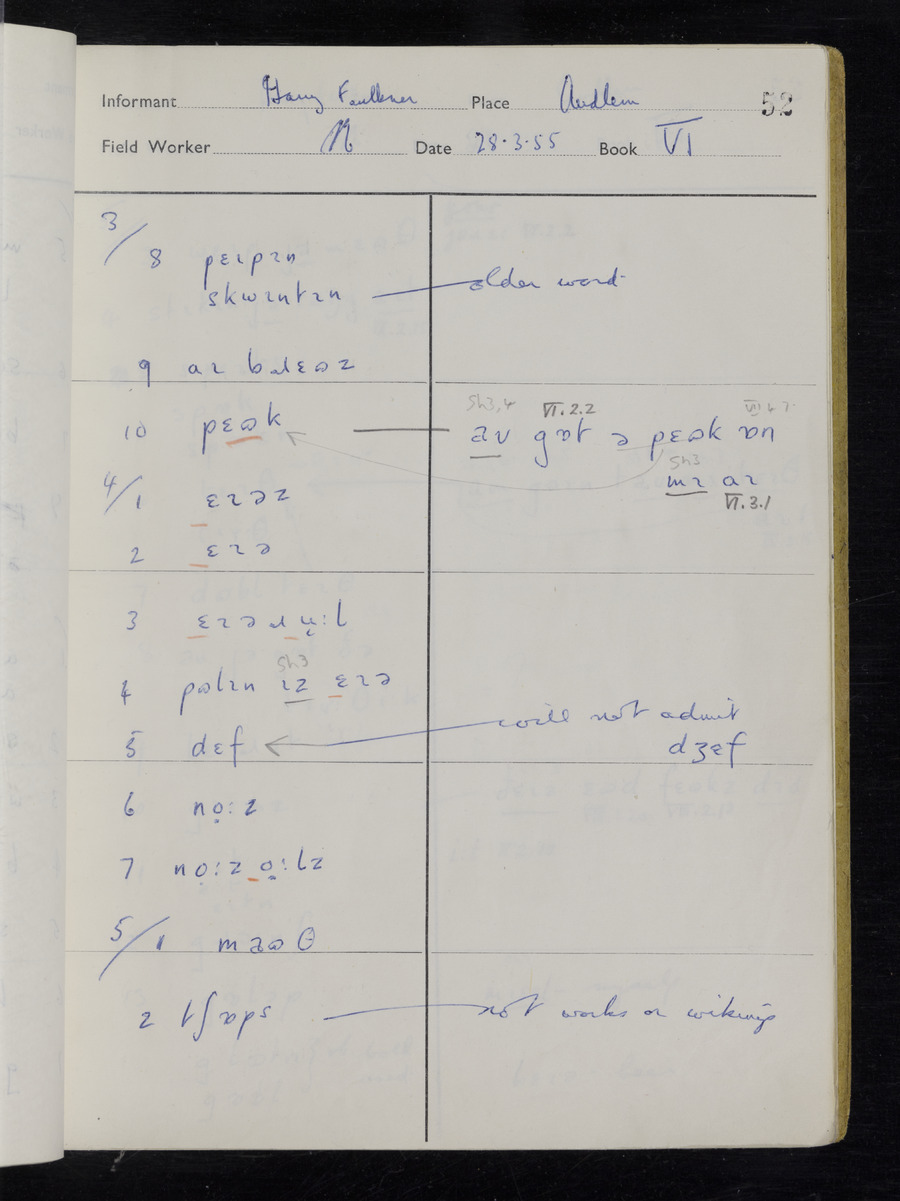 Informant Harry Faulkner Place Audlem 52
Field Worker Date 28.3.55 Book VI
3/8 pɛɪpɪn
skwɪntɪn — older word
9 aɪ bɹɛɷz
10 pɛɷk — av gɒt ə pɛɷk ɒn
Sh3,4 VI.2.2
Sh3
mɪ aɪ
VI.3.1
4/1 ɛɪəz
2 ɛɪə
3 ɛɪəɹu̜:l
Sh3
4 pɷlɪn ɪz ɛɪə
5 dɛf ← will not admit
dʒɛf
6 nọ:z
7 nọ:z ọ:lz
5/1 maɷθ
2 tʃɒps — not works or wikings